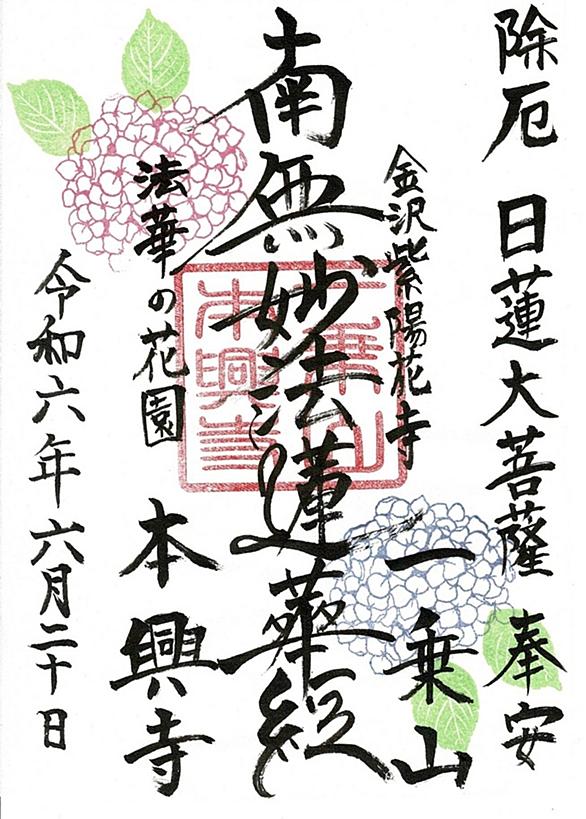 除厄 日蓮大菩薩 奉安
金沢紫陽花寺
一乗山
南無妙法蓮華経
法華の花園
本興寺
令和六年六月二十日